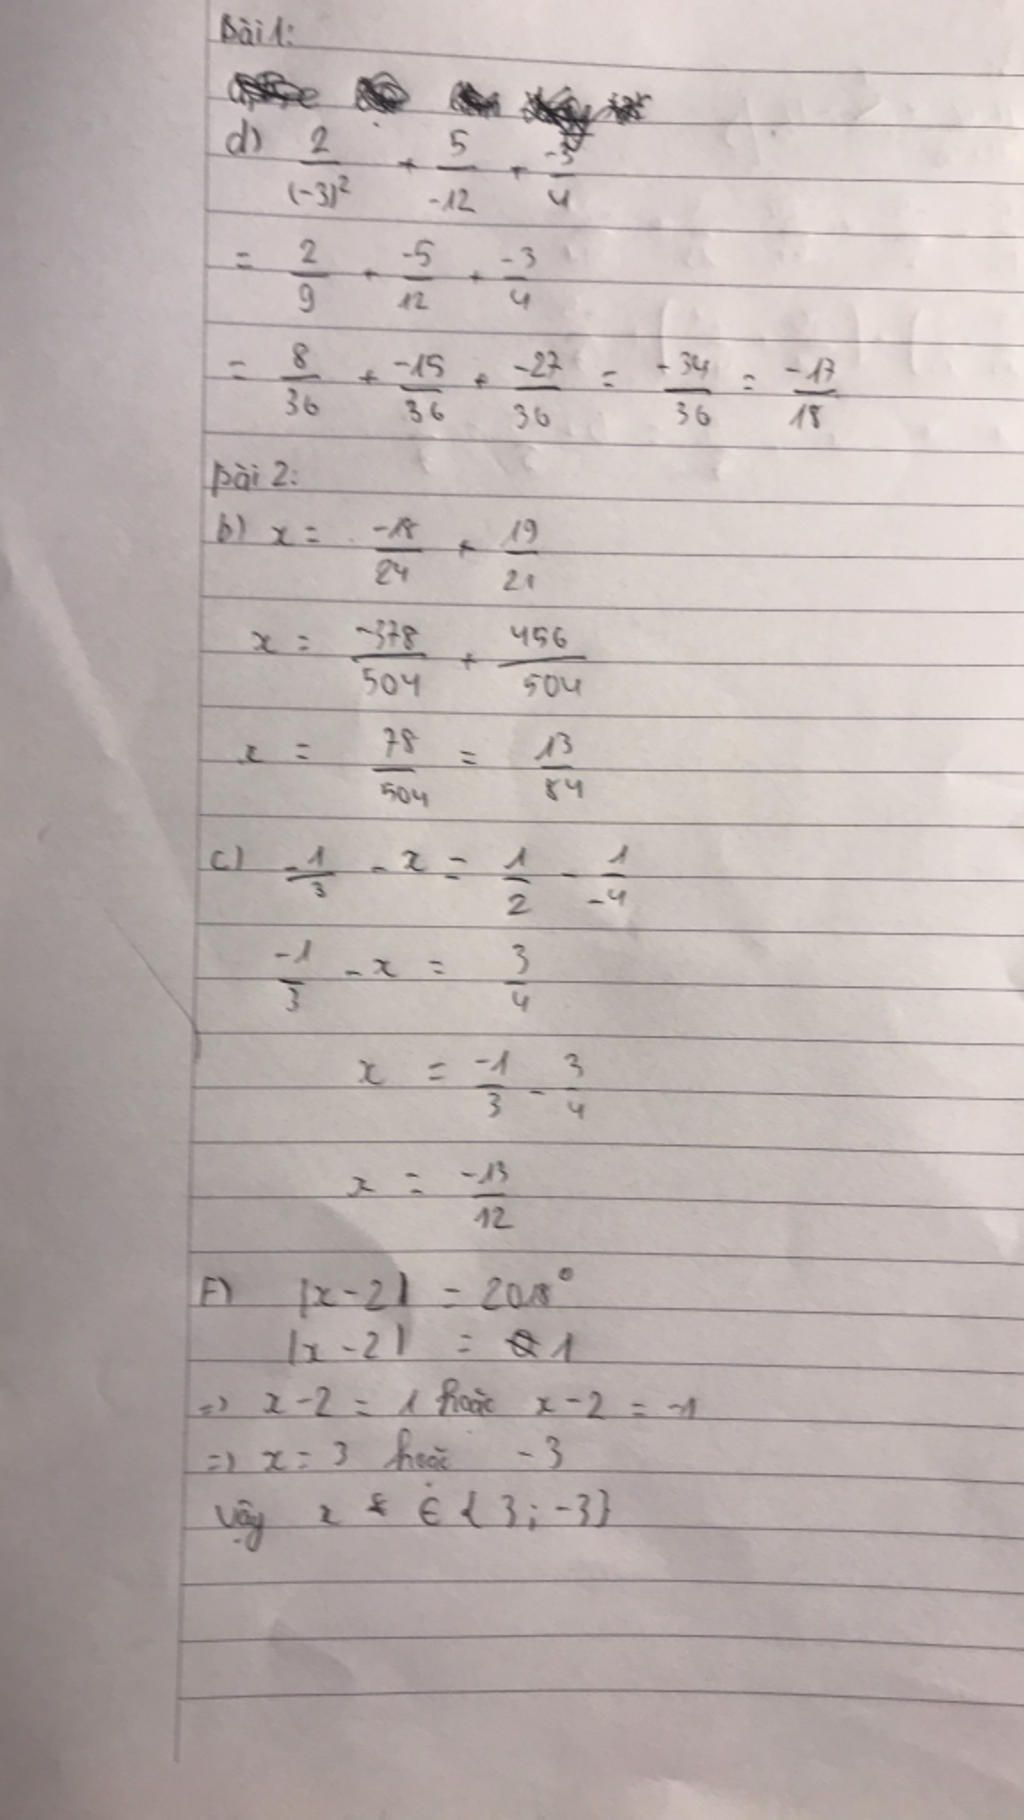 Bài 1:
d) 2/(-3)² + 5/-12 + -3/4
= 2/9 + -5/12 + -3/4
= 8/36 + -15/36 + -27/36 = -34/36 = -17/18
Bài 2:
b) x = -18/24 + 19/21
x = -378/504 + 456/504
x = 78/504 = 13/84
c) -1/3 - x = 1/2 - 1/-4
-1/3 - x = 3/4
x = -1/3 - 3/4
x = -13/12
F) |x-2| = 2018⁰
|x-2| = 1
=> x-2 = 1 hoặc x-2 = -1
=> x = 3 hoặc -3
Vậy x ∈ {3; -3}